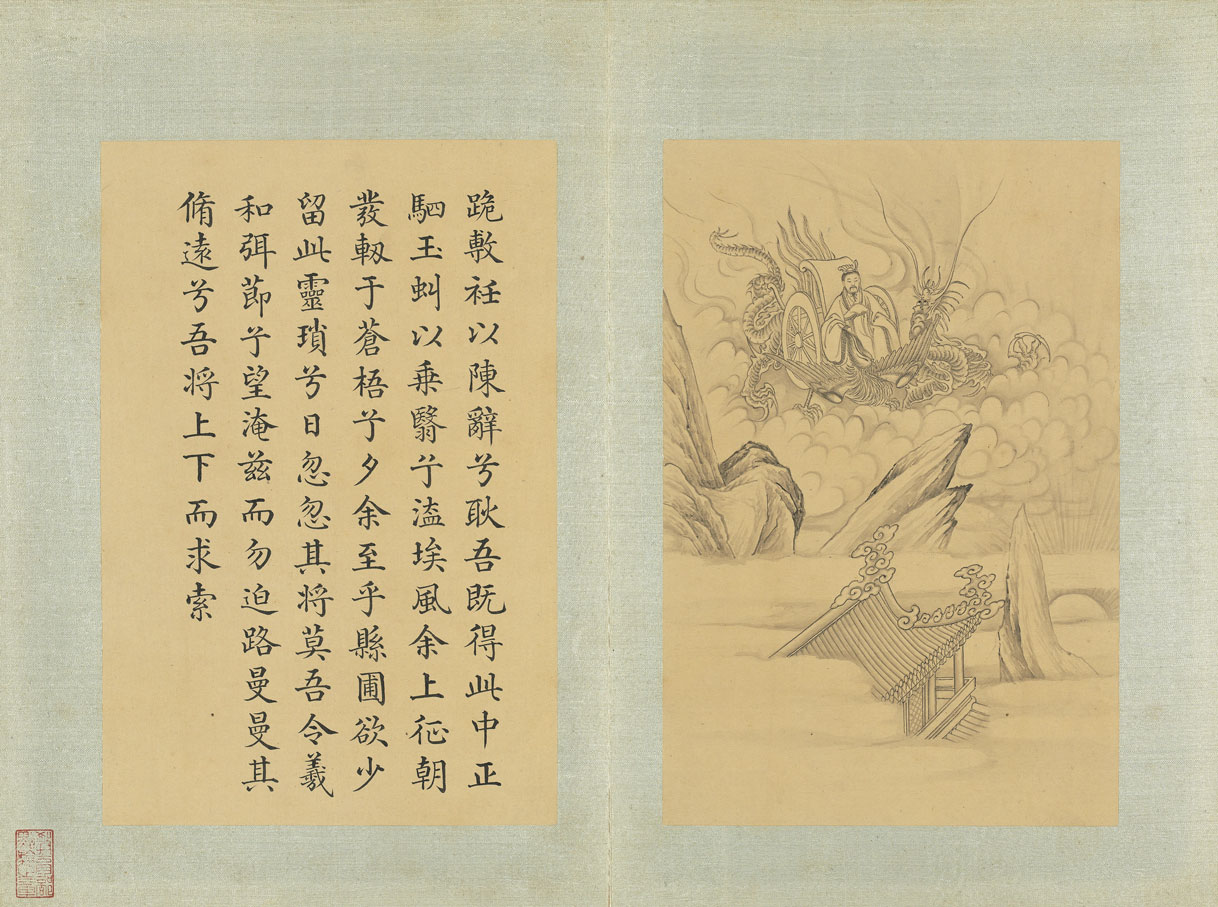 跪敷衽以陳辭兮耿吾既得此中正
駟玉虬以乗翳兮溘埃風余上征朝
發軔于蒼梧兮夕余至乎縣圃欲少
留此靈瑣兮日忽忽其将莫吾令羲
和弭節兮望淹兹而勿迫路曼曼其
脩遠兮吾将上下而求索